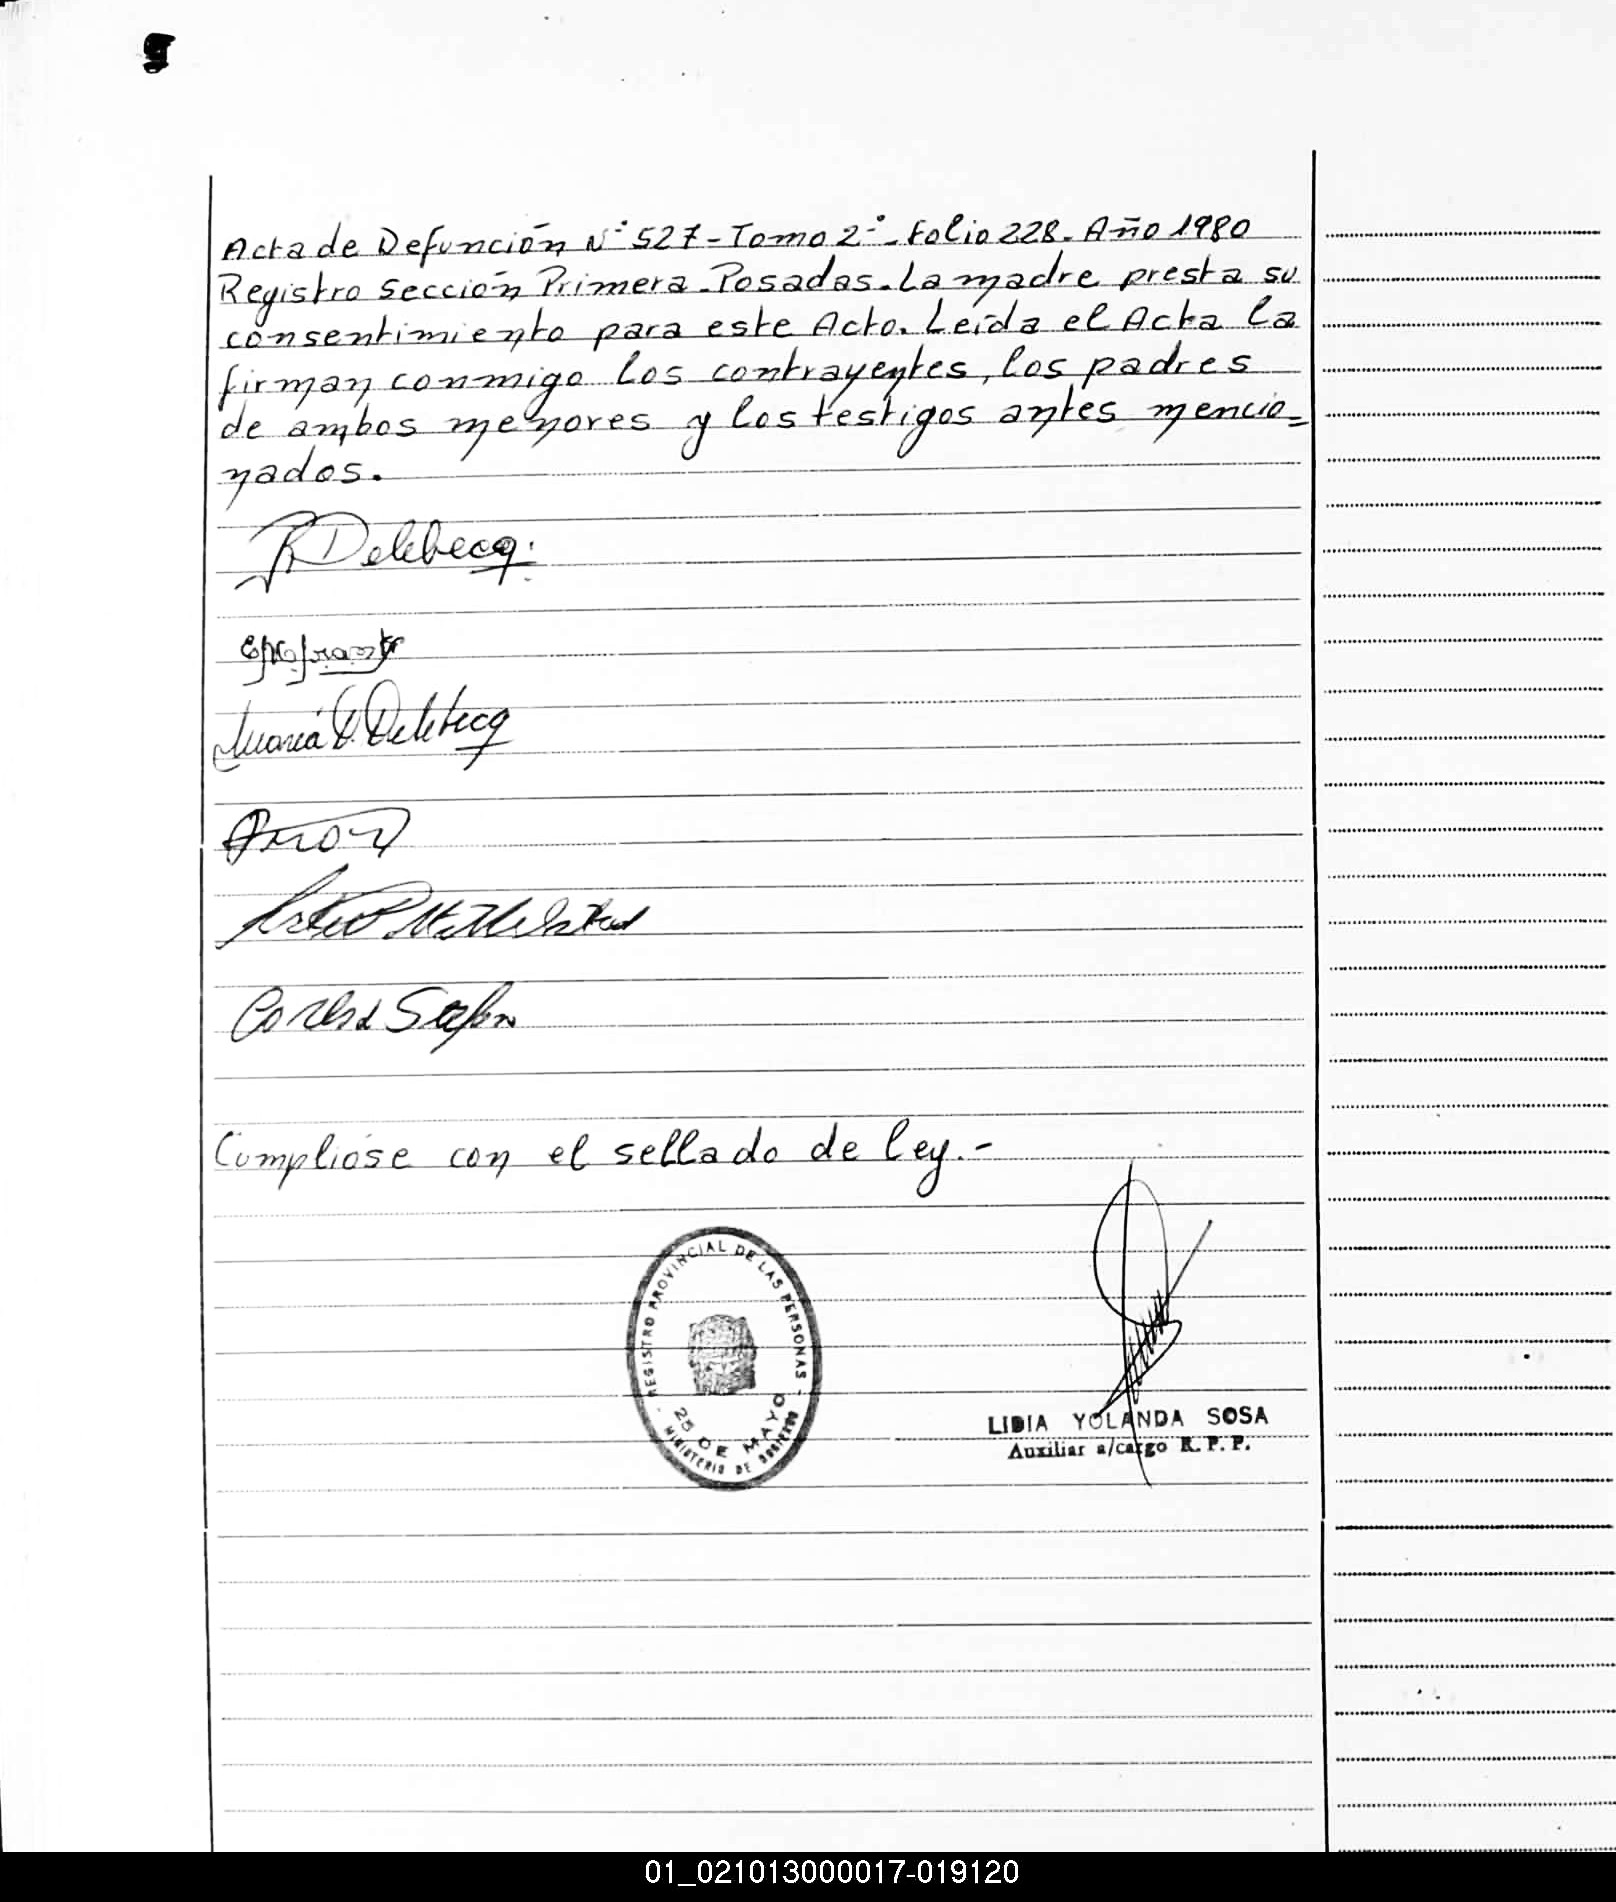 Acta de Defunción N° 527 - Tomo 2° - Folio 228. Año 1980
Registro Sección Primera - Posadas. La madre presta su
consentimiento para este Acto. Leída el Acta la
firman conmigo los contrayentes, los padres
de ambos menores y los testigos antes mencio=
nados.
R Delebecq.
María D. Delebecq
Cumplióse con el sellado de ley.-
REGISTRO PROVINCIAL DE LAS PERSONAS -
25 DE MAYO
- MINISTERIO DE GOBIERNO
LIDIA YOLANDA SOSA
Auxiliar a/cargo R. P. P.
01_021013000017-019120